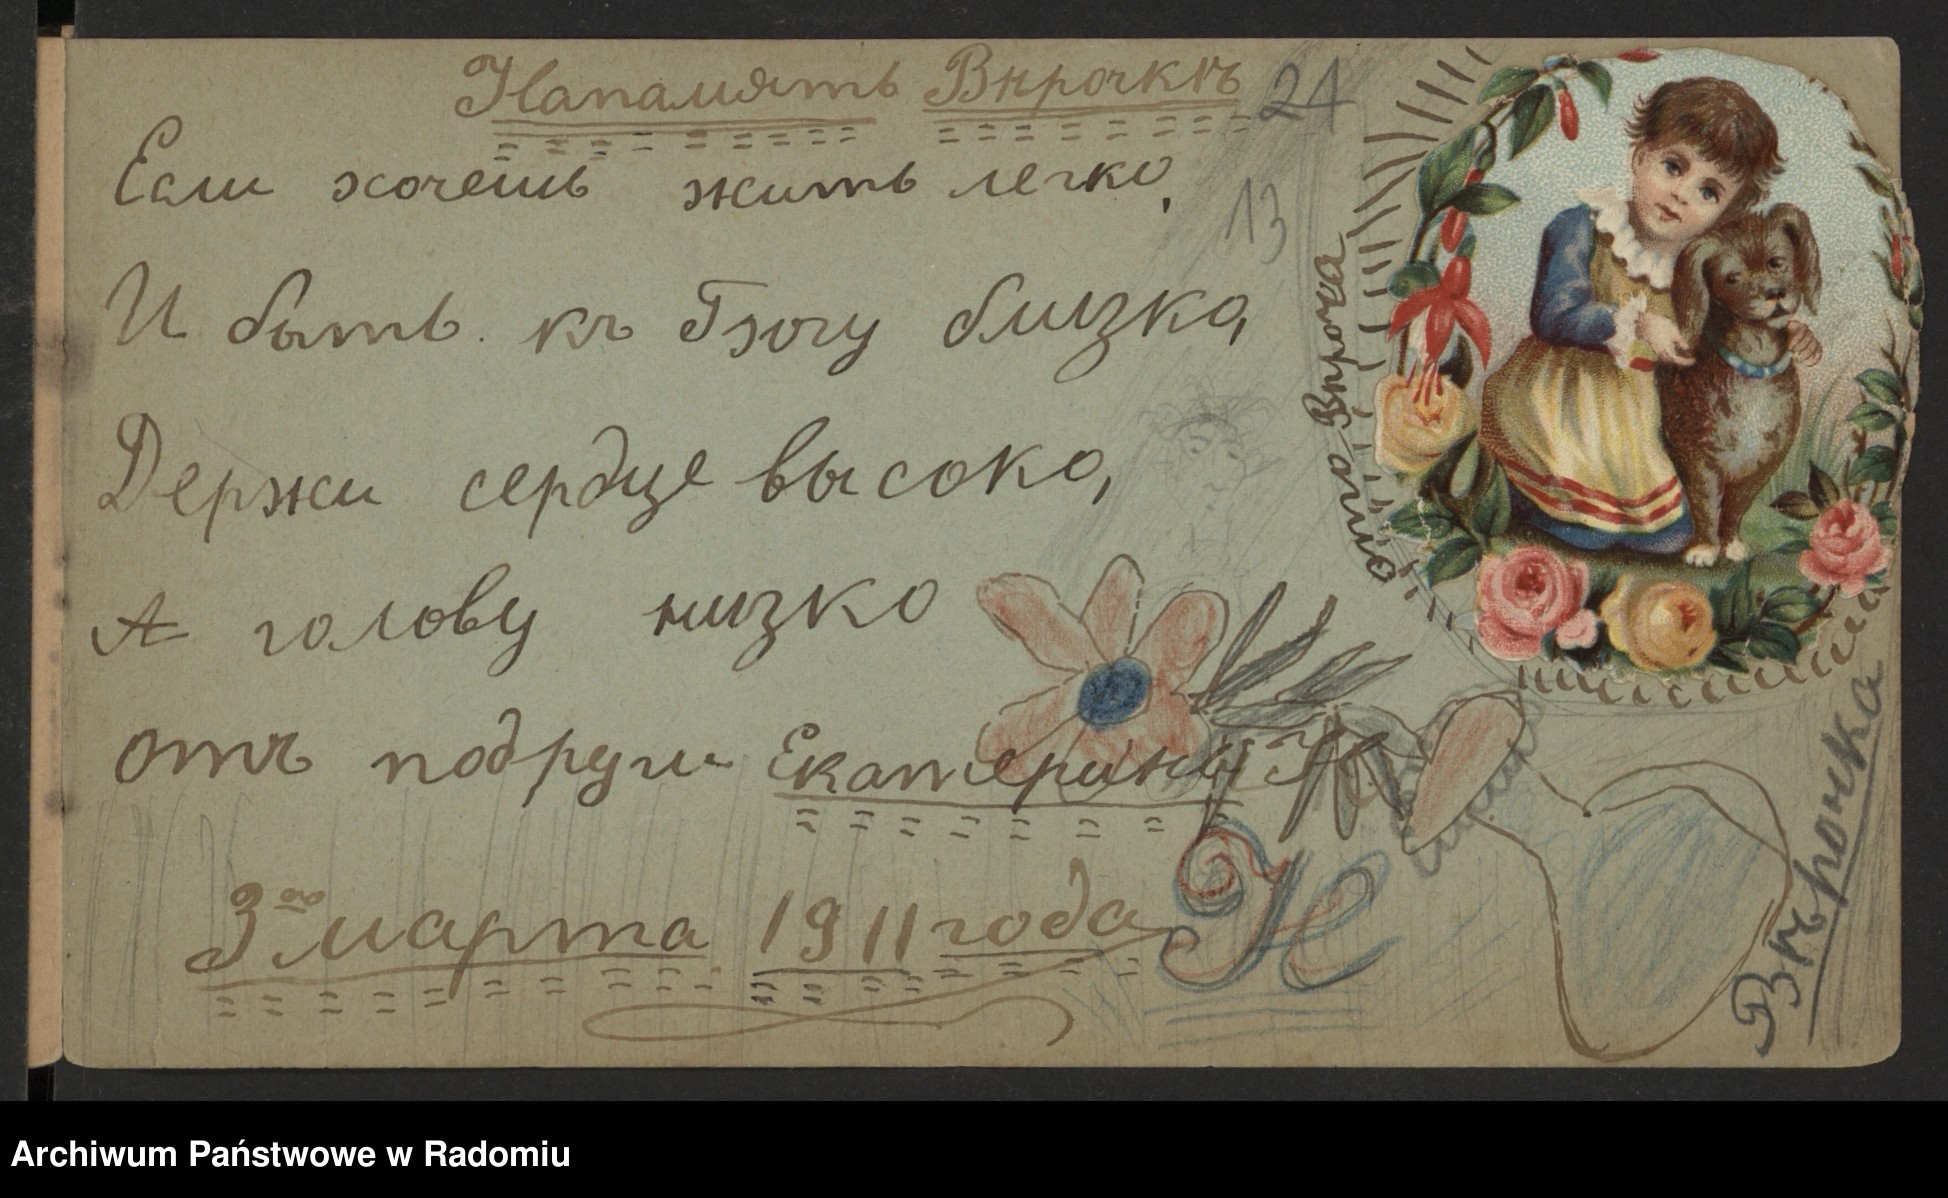 Напамять Вѣрочкѣ
24
Если хочешь жить легко,
13
И быть къ Богу близко,
Держи сердце высоко,
А голову низко
отъ подруги Екатерины Н
3го марта 1911 года
Н
это Вѣроча
Вѣрочка
Archiwum Państwowe w Radomiu